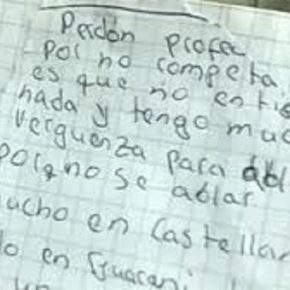 Perdón profe
por no competa
es que no entie
nada y tengo muc
verguenza para abl
porq no se ablar
ucho en Castellan
lo en Guarani
un